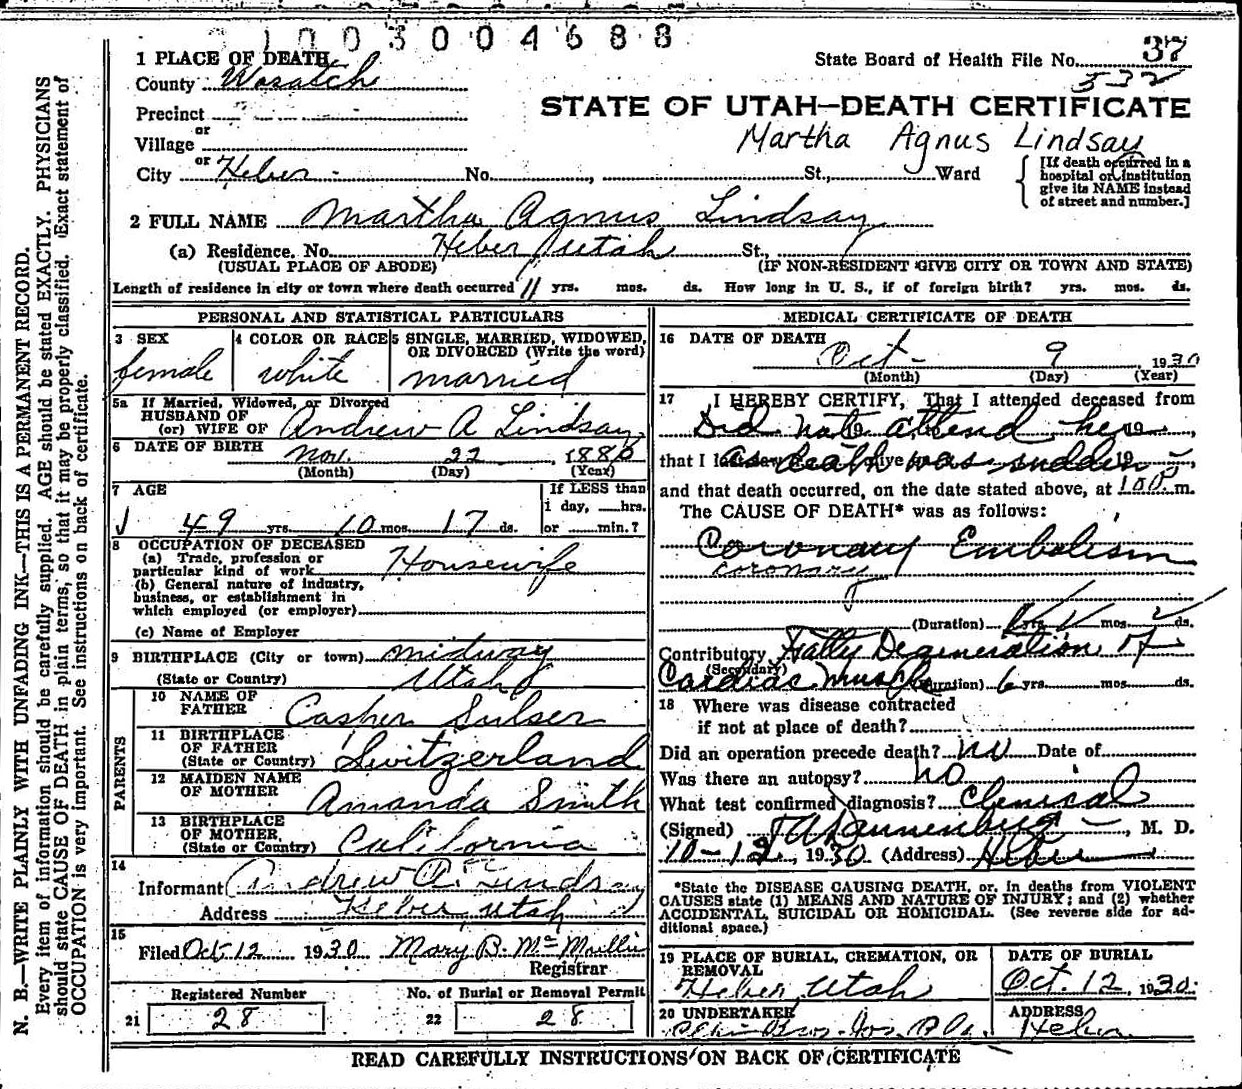 1003004688
1 PLACE OF DEATH
State Board of Health File No. 37
532
County Wasatch
Precinct
STATE OF UTAH—DEATH CERTIFICATE
or
Village
Martha Agnus Lindsay
or
City Heber No. , St., Ward
[If death occurred in a hospital or institution give its NAME instead of street and number.]
2 FULL NAME Martha Agnus Lindsay
(a) Residence. No. Heber, Utah St.,
(USUAL PLACE OF ABODE) (IF NON-RESIDENT GIVE CITY OR TOWN AND STATE)
Length of residence in city or town where death occurred 11 yrs. mos. ds. How long in U. S., if of foreign birth? yrs. mos. ds.
PERSONAL AND STATISTICAL PARTICULARS
3 SEX
female
4 COLOR OR RACE
white
5 SINGLE, MARRIED, WIDOWED,
OR DIVORCED (Write the word)
married
5a If Married, Widowed, or Divorced
HUSBAND OF
(or) WIFE OF Andrew A Lindsay
6 DATE OF BIRTH Nov. 22, 1880
(Month) (Day) (Year)
7 AGE
49 yrs. 10 mos. 17 ds.
If LESS than
1 day, hrs.
or min.?
8 OCCUPATION OF DECEASED
(a) Trade, profession or
particular kind of work Housewife
(b) General nature of industry,
business, or establishment in
which employed (or employer)
(c) Name of Employer
9 BIRTHPLACE (City or town) Midway
(State or Country) Utah
PARENTS
10 NAME OF
FATHER Casper Sulser
11 BIRTHPLACE
OF FATHER
(State or Country) Switzerland
12 MAIDEN NAME
OF MOTHER Amanda Smith
13 BIRTHPLACE
OF MOTHER,
(State or Country) California
14
Informant Andrew A. Lindsay
Address Heber, Utah
15
Filed Oct 12 1930 Mary B. McMullin
Registrar
Registered Number
21 28
No. of Burial or Removal Permit
22 28
MEDICAL CERTIFICATE OF DEATH
16 DATE OF DEATH
Oct- 9 1930
(Month) (Day) (Year)
17 I HEREBY CERTIFY, That I attended deceased from
Did not attend her 19 , 19 ,
that I as death was sudden 19
and that death occurred, on the date stated above, at 1:00 P. m.
The CAUSE OF DEATH* was as follows:
Coronary Embolism
coronary
(Duration) yrs. mos. 2 ds.
Contributory Fatty Degeneration of
(Secondary)
Cardiac Muscle (Duration) 6 yrs. mos. ds.
18 Where was disease contracted
if not at place of death?
Did an operation precede death? no Date of
Was there an autopsy? no
What test confirmed diagnosis? Clinical
(Signed) , M. D.
10-12, 1930 (Address) Heber
*State the DISEASE CAUSING DEATH, or, in deaths from VIOLENT
CAUSES state (1) MEANS AND NATURE OF INJURY; and (2) whether
ACCIDENTAL, SUICIDAL OR HOMICIDAL. (See reverse side for ad-
ditional space.)
19 PLACE OF BURIAL, CREMATION, OR
REMOVAL
Heber, Utah
DATE OF BURIAL
Oct. 12, 1930
20 UNDERTAKER
ADDRESS
Heber
READ CAREFULLY INSTRUCTIONS ON BACK OF CERTIFICATE
N. B.—WRITE PLAINLY WITH UNFADING INK—THIS IS A PERMANENT RECORD.
Every item of information should be carefully supplied. AGE should be stated EXACTLY. PHYSICIANS
should state CAUSE OF DEATH in plain terms, so that it may be properly classified. Exact statement of
OCCUPATION is very important. See instructions on back of certificate.